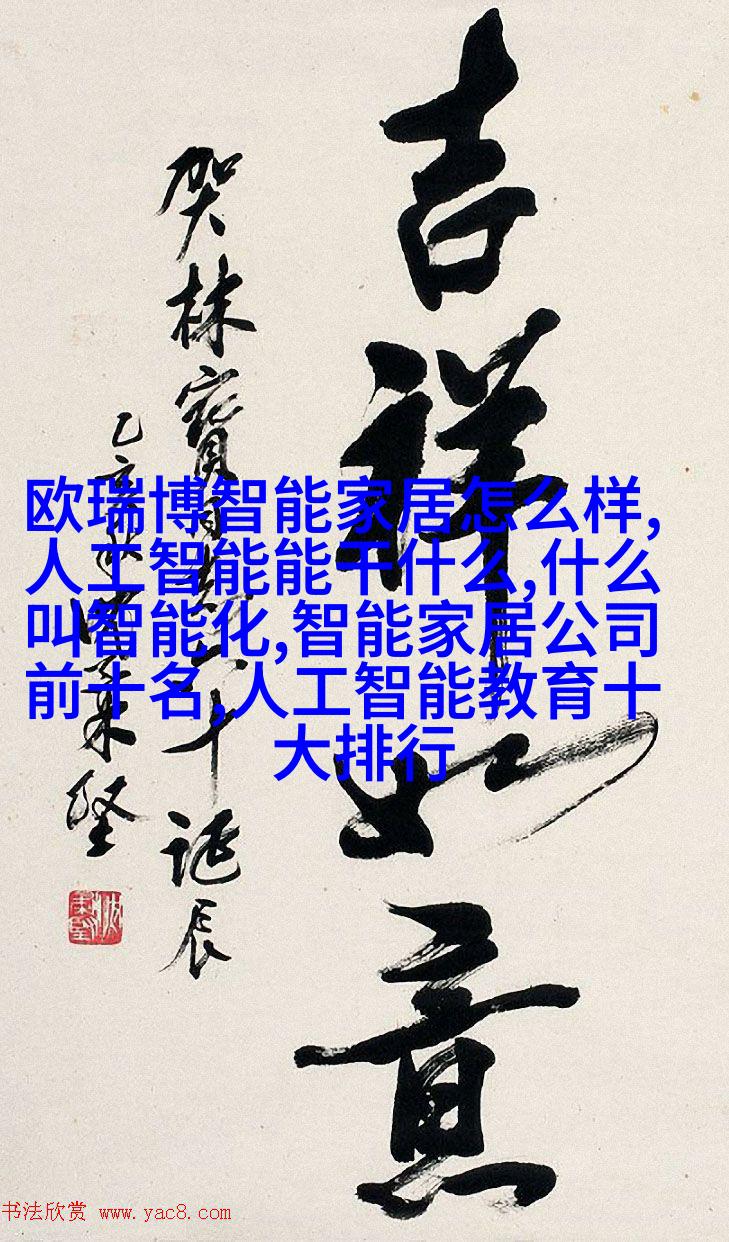 吉祥如意
贺林宝
十诞辰
欧瑞博智能家居怎么样,
人工智能能干什么,什么
叫智能化,智能家居公司
前十名,人工智能教育十
大排行
书法欣赏 www.yac8.com